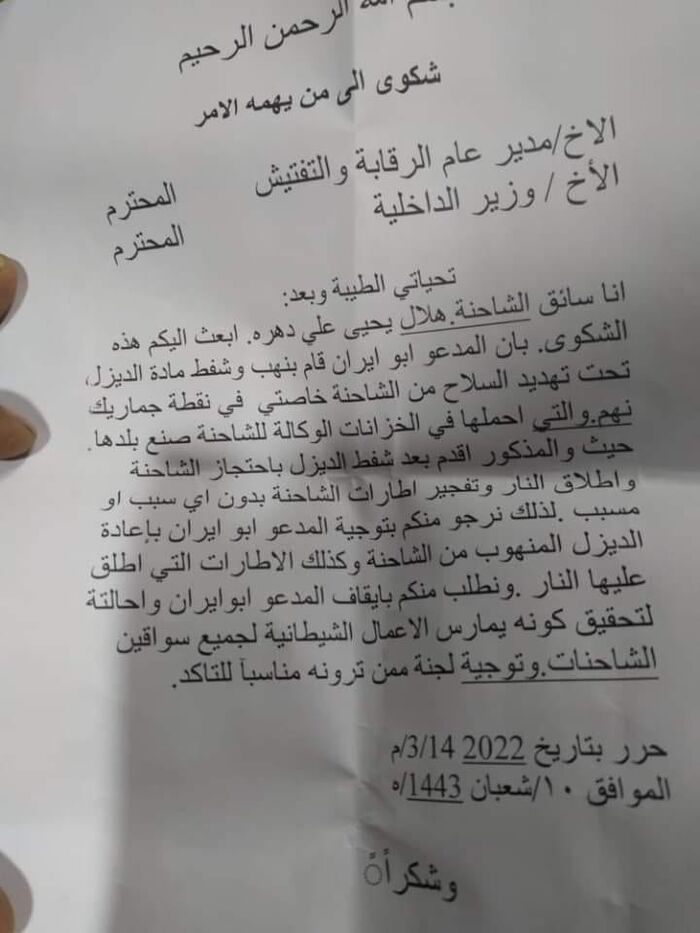 بسم الله الرحمن الرحيم
شكوى الى من يهمه الامر
الاخ/مدير عام الرقابة والتفتيش المحترم
الأخ / وزير الداخلية المحترم
تحياتي الطيبة وبعد:
انا سائق الشاحنة.هلال يحيى علي دهره. ابعث اليكم هذه
الشكوى. بان المدعو ابو ايران قام بنهب وشفط مادة الديزل،
تحت تهديد السلاح من الشاحنة خاصتي في نقطة جماريك
نهم.والتي احملها في الخزانات الوكالة للشاحنة صنع بلدها.
حيث والمذكور اقدم بعد شفط الديزل باحتجاز الشاحنة
واطلاق النار وتفجير اطارات الشاحنة بدون اي سبب او
مسبب .لذلك نرجو منكم بتوجية المدعو ابو ايران بإعادة
الديزل المنهوب من الشاحنة وكذلك الاطارات التي اطلق
عليها النار .ونطلب منكم بايقاف المدعو ابوايران واحالتة
لتحقيق كونه يمارس الاعمال الشيطانية لجميع سواقين
الشاحنات.وتوجية لجنة ممن ترونه مناسبآ للتاكد.
حرر بتاريخ 2022 3/14/م
الموافق ١٠/شعبان 1443/ه
وشكرأً